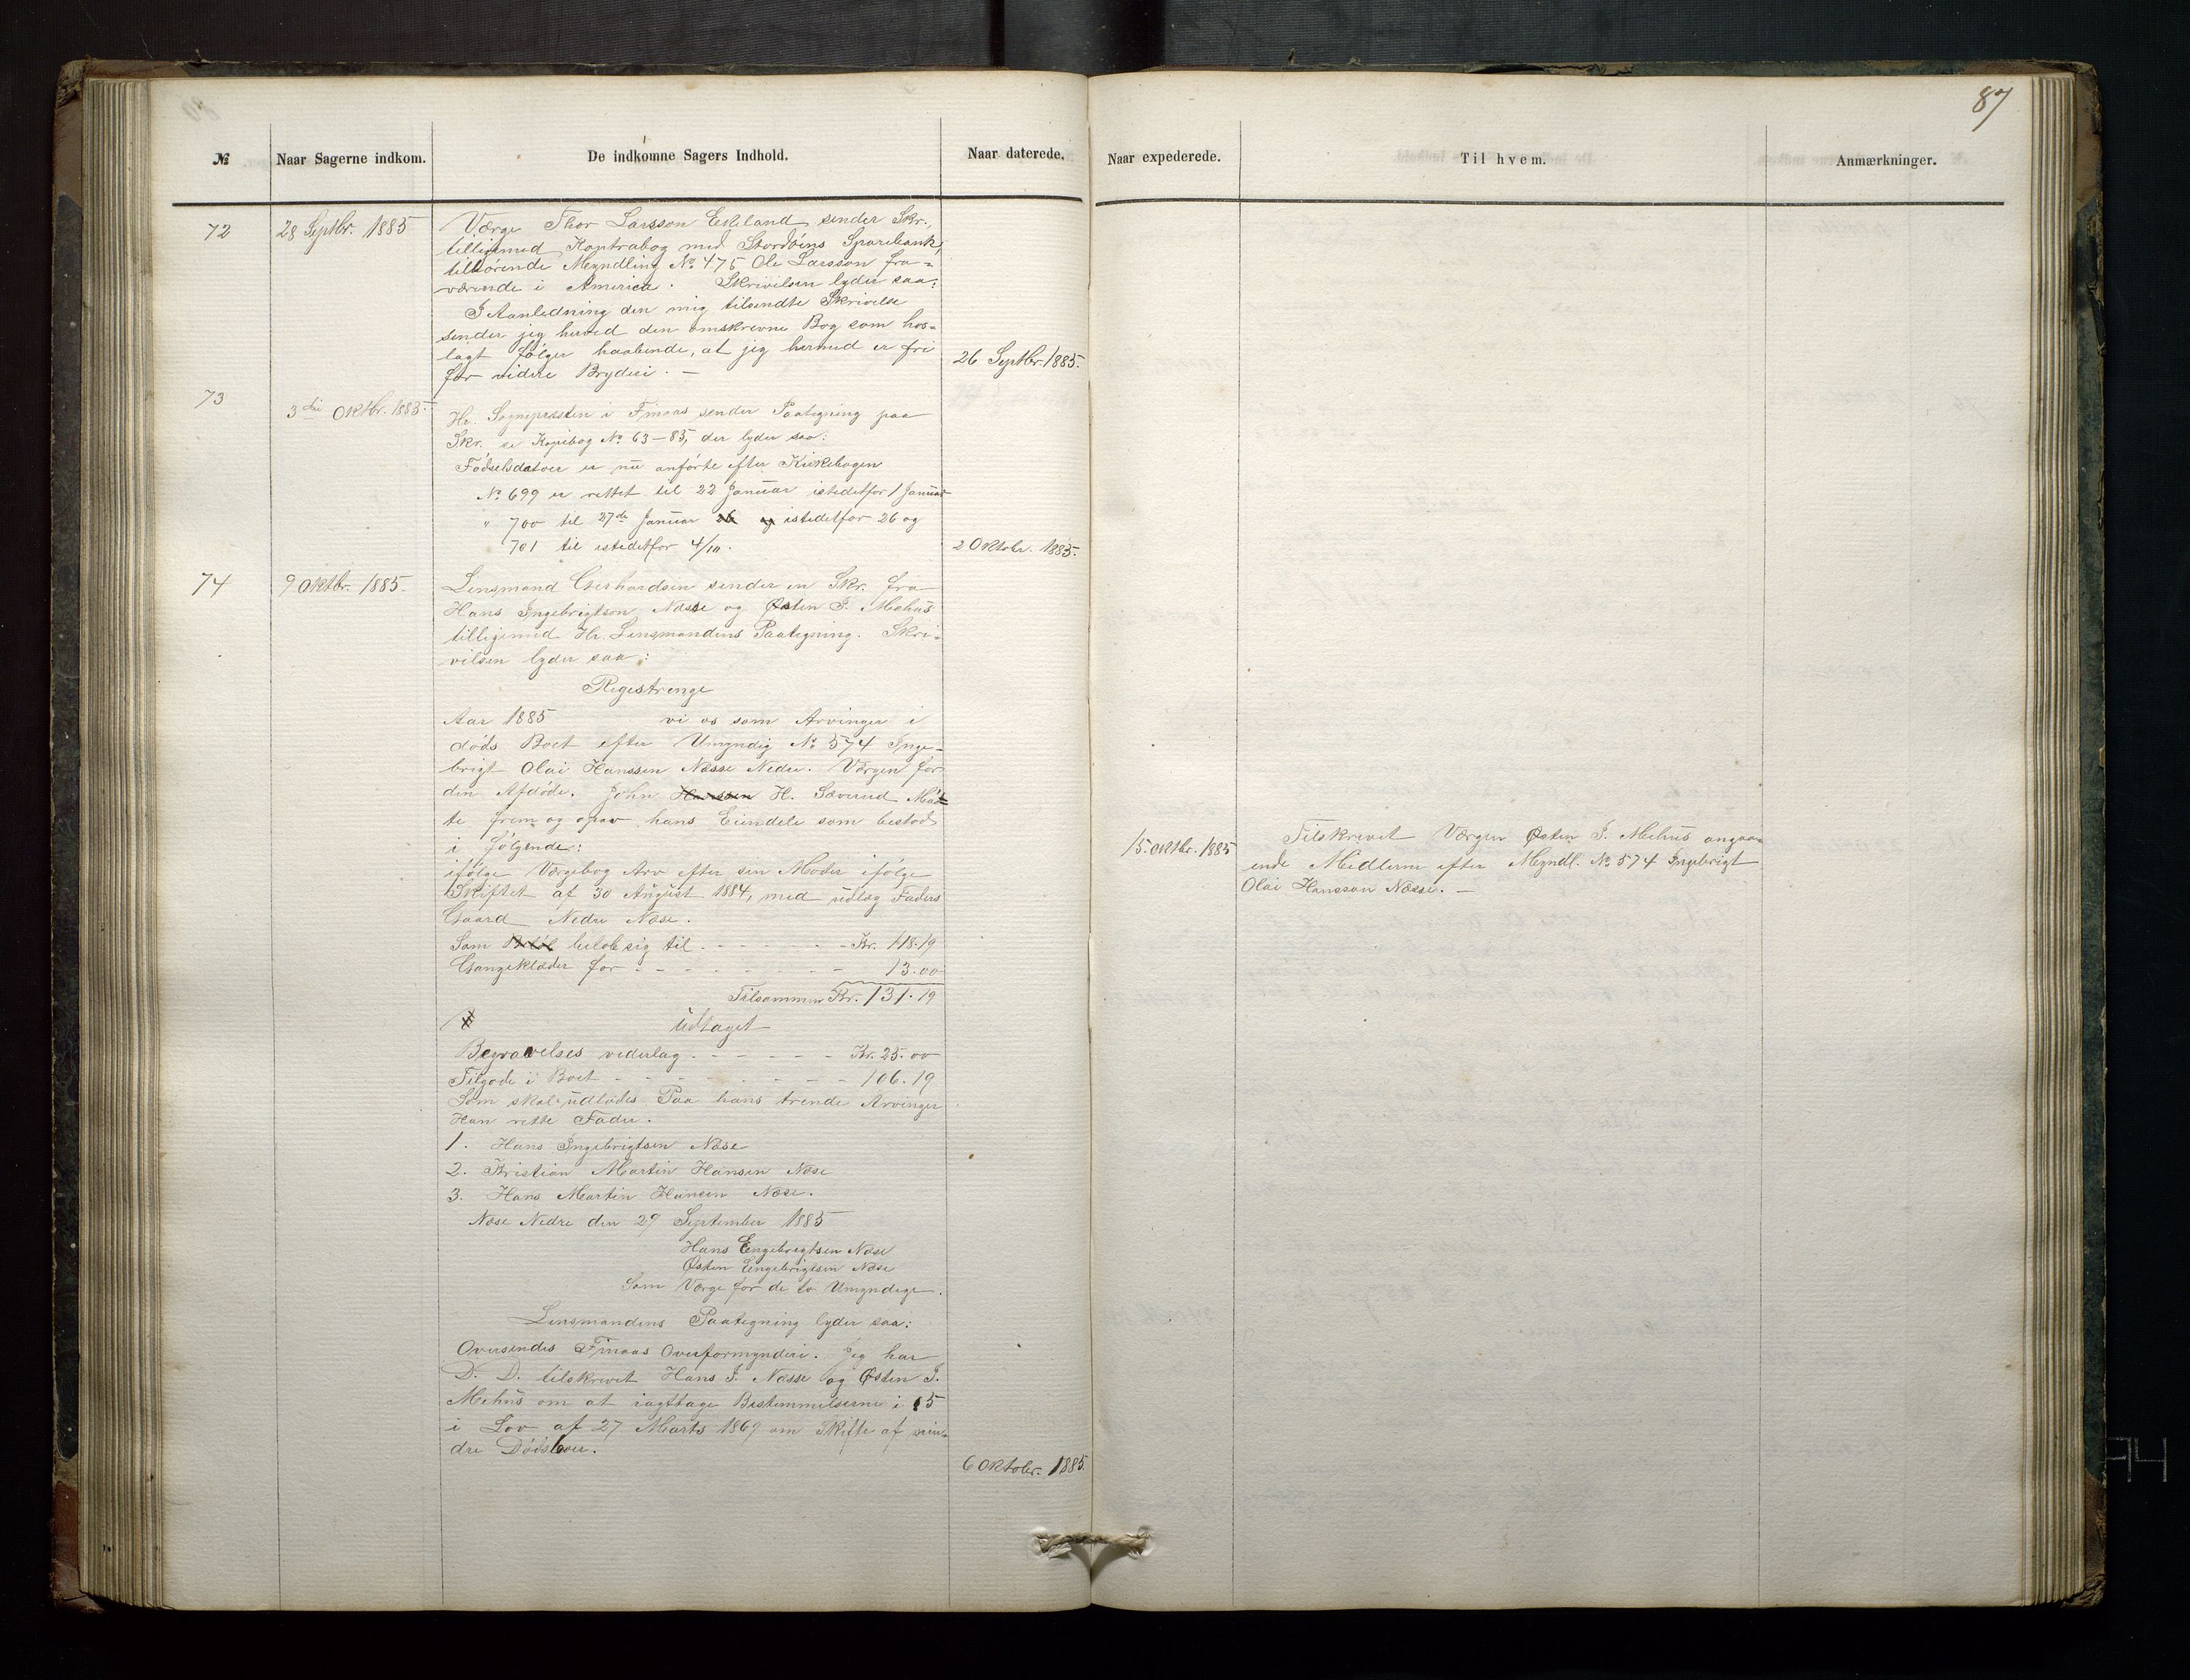 87
№ Naar Sagerne indkom. De indkomne Sagers Indhold. Naar daterede. Naar expederede. Til hvem. Anmærkninger.
72 28 Septbr. 1885 Værge Thor Larsson Eskeland sender Skr.,
tilligemed Kontrabog med Stordøens Sparebank,
tilhørende Myndling No. 475 Ole Larsson fra-
værende i America. Skrivelsen lyder saa:
I Aanledning den mig tilsendte Skrivelse
sender jeg herved den omskrevne Bog som hos-
lagt følger haabende, at jeg hermed er fri
for videre Bryderi. —
26 Septbr. 1885.
73 3die Oktbr. 1885. Hr. Sognepræsten i Finaas sender Paategning paa
Skr. se Kopibog No. 63-85, der lyder saa:
Fødselsdatoer er nu anførte efter Kirkebogen
No. 699 er rettet til 22 Januar istedetfor 1 Januar
" 700 til 27de Januar 26 og istedetfor 26 og
701 til istedetfor 4/10.
2 Oktobr. 1885.
74 9 Oktbr. 1885. Lensmand Gerhardsen sender en Skr. fra
Hans Ingebrigtson Næsse og Østen I. Mehus
tilligemed Hr. Lensmandens Paategning. Skri-
velsen lyder saa:
Regestrenge
Aar 1885 vi os som Arvinger i
døds Boet efter Umyndig No. 574 Inge-
brigt Olai Hanssen Næsse Nedre. Værgen for
den Afdøde. John Hanssen H. Sæverud Mød-
te frem og opgav hans Eiendele som bestod
i følgende:
ifølge Værgebog Arv efter sin Moder ifølge
Skiftet af 30 August 1884, med udlæg Faders
Gaard Nedre Næse.
Som beløb sig til - - - - - - Kr. 118.19
Gangeklæder for - - - - - - 13.00
Tilsammen Kr. 131.19
udtaget
Begravelses vederlag - - - - - Kr. 25.00
Tilgode i Boet - - - - - - 106.19
Som skal udlodes Paa hans trende Arvinger
Han rette Fader.
1. Hans Ingebrigtsen Næse
2. Kristian Martin Hansen Næse
3. Hans Martin Hansen Næse.
Næse Nedre den 29 September 1885
Hans Engebrigtsen Næse
Østen Engebrigtsen Næse
Som Værge for de to Umyndige.
Lensmandens Paategning lyder saa:
Oversendes Finaas Overformynderi. Jeg har
D. D. tilskrevet Hans I. Næsse og Østen I.
Mehus om at iagttage Bestemmelserne i § 5
i Lov af 27 Marts 1869 om Skifte af min-
dre Dødsboer.
6 Oktobr. 1885.
15. Oktbr. 1885 Tilskrevet Værgen Østen I. Mehus angaa-
ende Midlerne efter Myndl. No. 574 Ingebrigt
Olai Hansson Næsse. —